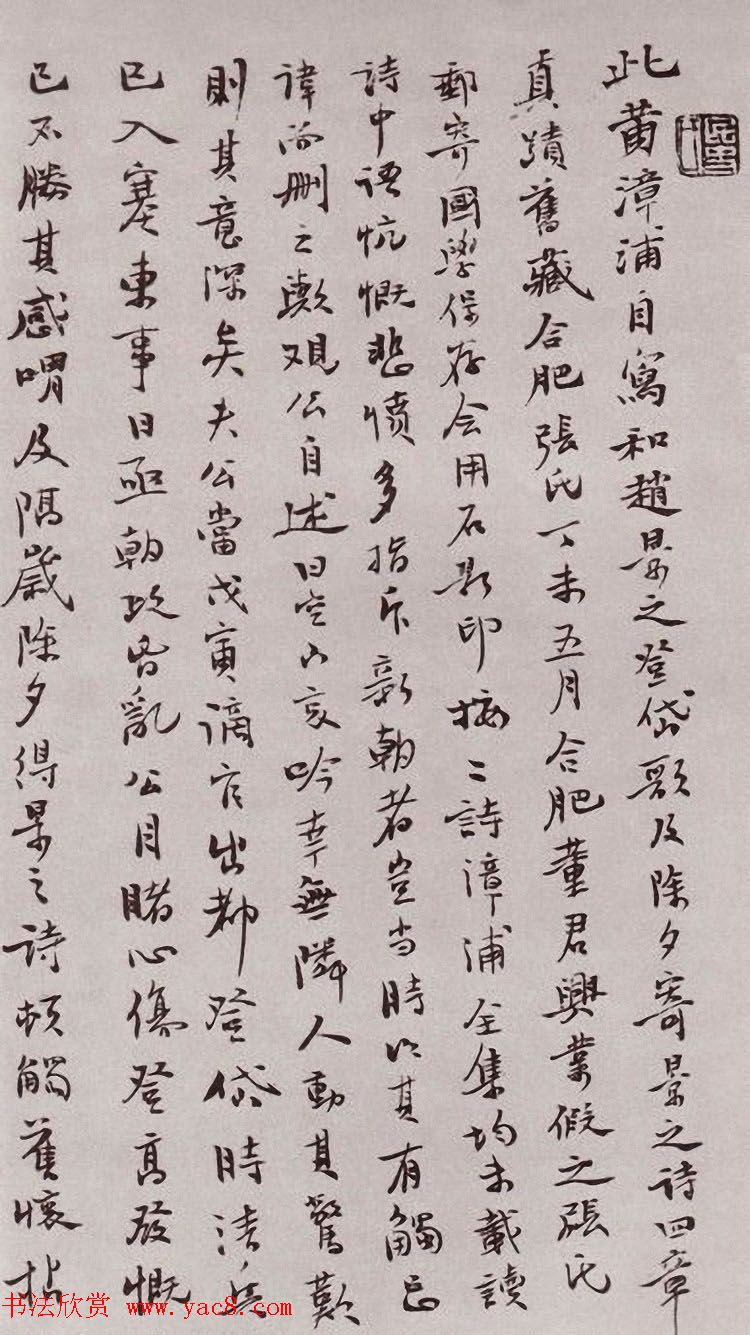 此黄漳浦自寫和趙景之登岱歌及除夕寄景之詩四章
真蹟舊藏合肥張氏丁未五月合肥董君興業假之張氏
郵寄國學保存会用石影印按二詩漳浦全集均未載讀
詩中语忼慨悲憤多指斥新朝者豈当時以其有觸忌
諱而删之歟观公自述曰空山哀吟幸無隣人動其驚歎
則其意深矣夫公當戊寅謫官出都登岱時清兵
已入塞東事日亟朝政昏亂公目睹心傷登高發慨
已不勝其感喟及隔歲除夕得景之詩頓觸舊懷拈
书法欣赏 www.yac8.com